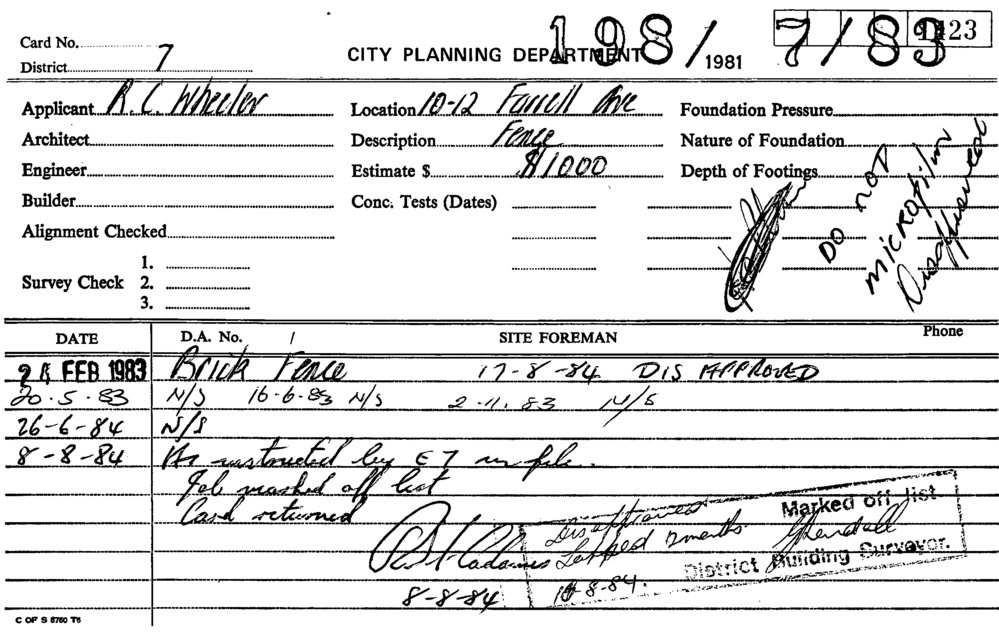 Card No.
198/ 7/83
1423
District 7
CITY PLANNING DEPARTMENT
1981
Applicant R. C. Wheeler
Location 10-12 Farrell Ave
Foundation Pressure
Architect
Description Fence
Nature of Foundation
Engineer
Estimate $ $1000
Depth of Footings
Builder
Conc. Tests (Dates)
Alignment Checked
DO NOT
MICROFILM
Disapproved
1.
Survey Check 2.
3.
DATE D.A. No. SITE FOREMAN Phone
24 FEB 1983 Brick Fence 17-8-84 DISAPPROVED
20.5.83 N/S 16-6-83 N/S 2-11.83 N/S
26-6-84 N/S
8-8-84 As instructed by E7 on file.
Job marked off list
Card returned
8-8-84
Marked off list
Disapproved
Lapsed 12 months
District Building Surveyor.
-8-84.
C OF S 6760 T6